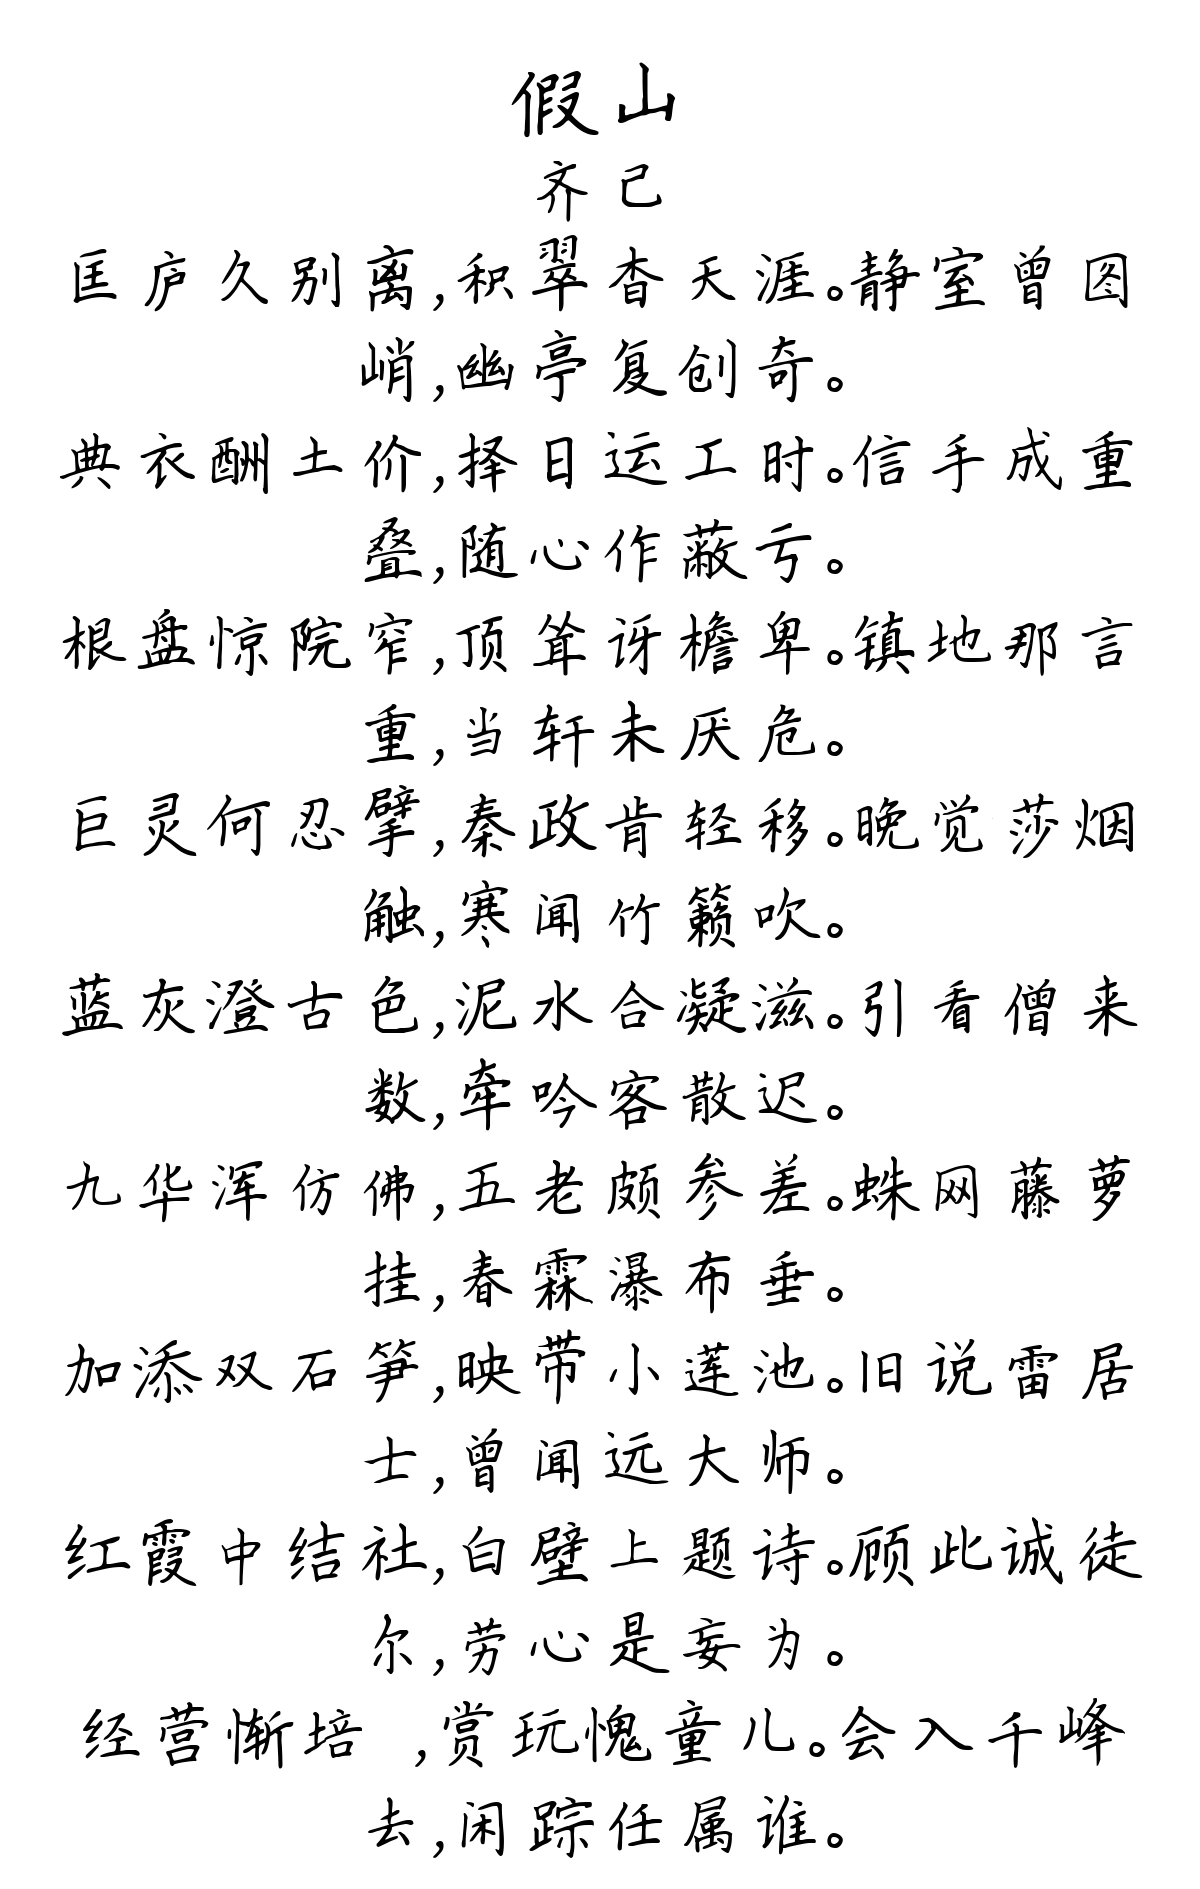 假山
齐己
匡庐久别离,积翠杳天涯。静室曾图
峭,幽亭复创奇。
典衣酬土价,择日运工时。信手成重
叠,随心作蔽亏。
根盘惊院窄,顶耸讶檐卑。镇地那言
重,当轩未厌危。
巨灵何忍擘,秦政肯轻移。晚觉莎烟
触,寒闻竹籁吹。
蓝灰澄古色,泥水合凝滋。引看僧来
数,牵吟客散迟。
九华浑仿佛,五老颇参差。蛛网藤萝
挂,春霖瀑布垂。
加添双石笋,映带小莲池。旧说雷居
士,曾闻远大师。
红霞中结社,白壁上题诗。顾此诚徒
尔,劳心是妄为。
经营惭培 ,赏玩愧童儿。会入千峰
去,闲踪任属谁。